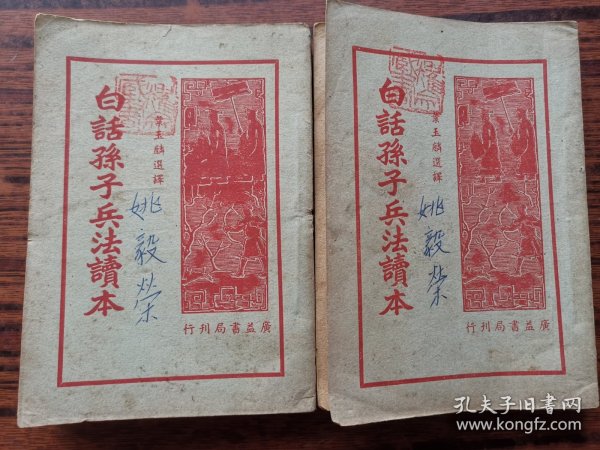 白話孫子兵法讀本
葉玉麟選譯
姚毅榮
廣益書局刊行
白話孫子兵法讀本
葉玉麟選譯
姚毅榮
廣益書局刊行
孔夫子旧书网
www.kongfz.com